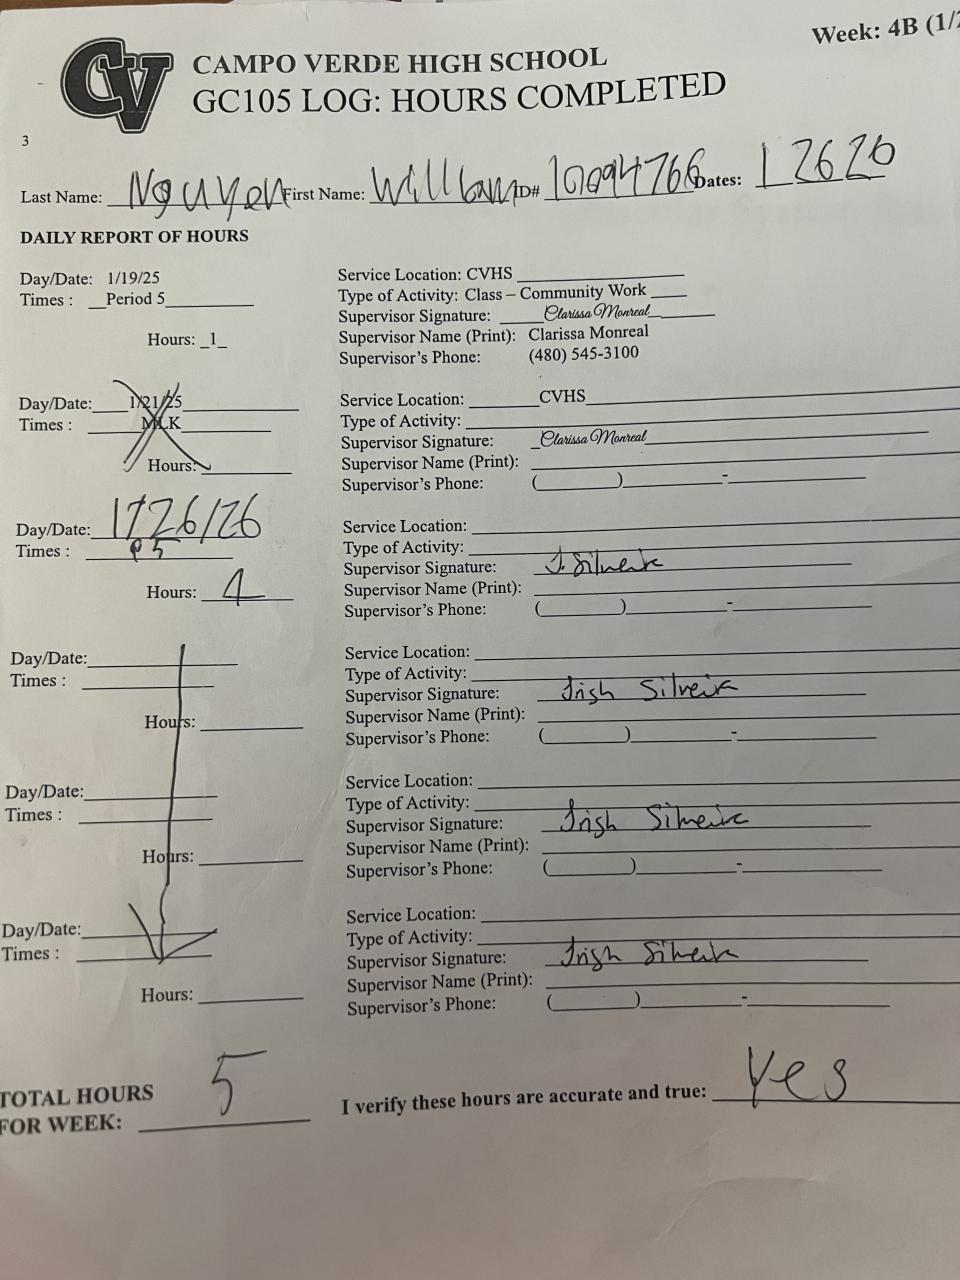 Week: 4B (1/2
CV
CAMPO VERDE HIGH SCHOOL
GC105 LOG: HOURS COMPLETED
3
Last Name: Nguyen First Name: William ID# 10094766 Dates: 1 26 26
DAILY REPORT OF HOURS
Day/Date: 1/19/25
Times : Period 5
Hours: 1
Service Location: CVHS
Type of Activity: Class – Community Work
Supervisor Signature: Clarissa Monreal
Supervisor Name (Print): Clarissa Monreal
Supervisor's Phone: (480) 545-3100
Day/Date: 1/21/25
Times : MLK
Hours:
Service Location: CVHS
Type of Activity:
Supervisor Signature: Clarissa Monreal
Supervisor Name (Print):
Supervisor's Phone: ( ) -
Day/Date: 1/26/26
Times : P5
Hours: 4
Service Location:
Type of Activity:
Supervisor Signature: J. Silveira
Supervisor Name (Print):
Supervisor's Phone: ( ) -
Day/Date:
Times :
Hours:
Service Location:
Type of Activity:
Supervisor Signature: Irish Silveira
Supervisor Name (Print):
Supervisor's Phone: ( ) -
Day/Date:
Times :
Hours:
Service Location:
Type of Activity:
Supervisor Signature: Irish Silveira
Supervisor Name (Print):
Supervisor's Phone: ( ) -
Day/Date:
Times :
Hours:
Service Location:
Type of Activity:
Supervisor Signature: Irish Silveira
Supervisor Name (Print):
Supervisor's Phone: ( ) -
TOTAL HOURS
FOR WEEK: 5
I verify these hours are accurate and true: Yes